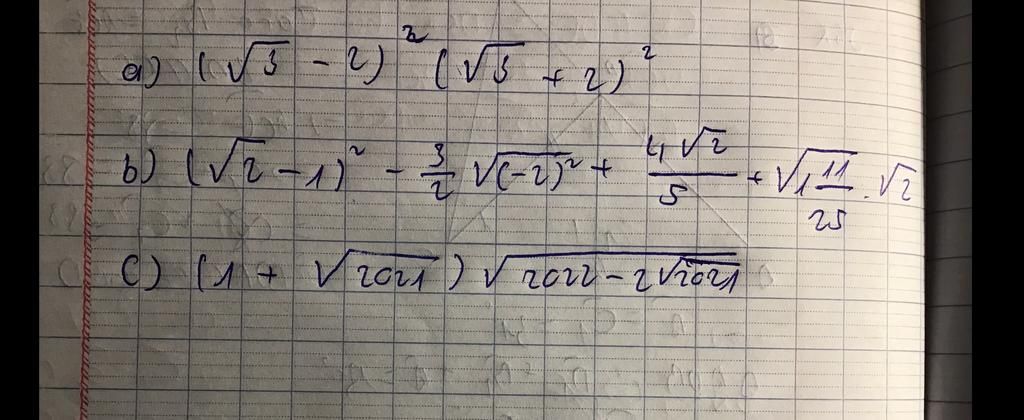 a) (√3 - 2)² (√3 + 2)²
b) (√2 - 1)² - 3/2 √(-2)² + 4√2/5 + √(1 11/25) . √2
c) (1 + √2021) √(2022 - 2√2021)